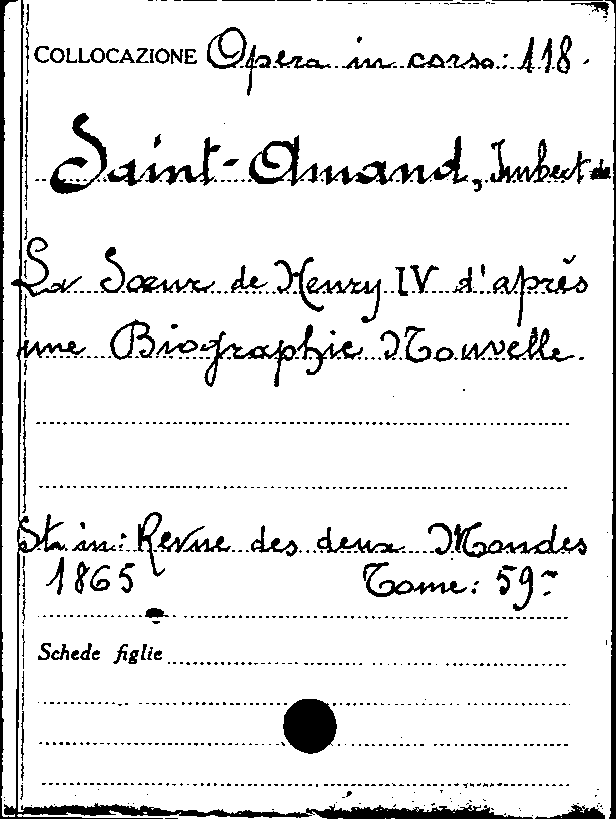 COLLOCAZIONE Opera in corso: 118.
Saint-Amand, Imbert de
La Sœur de Henry IV d'après
une Biographie Nouvelle.
St. in: Revue des deux Mondes
1865 Tome: 59~
Schede figlie